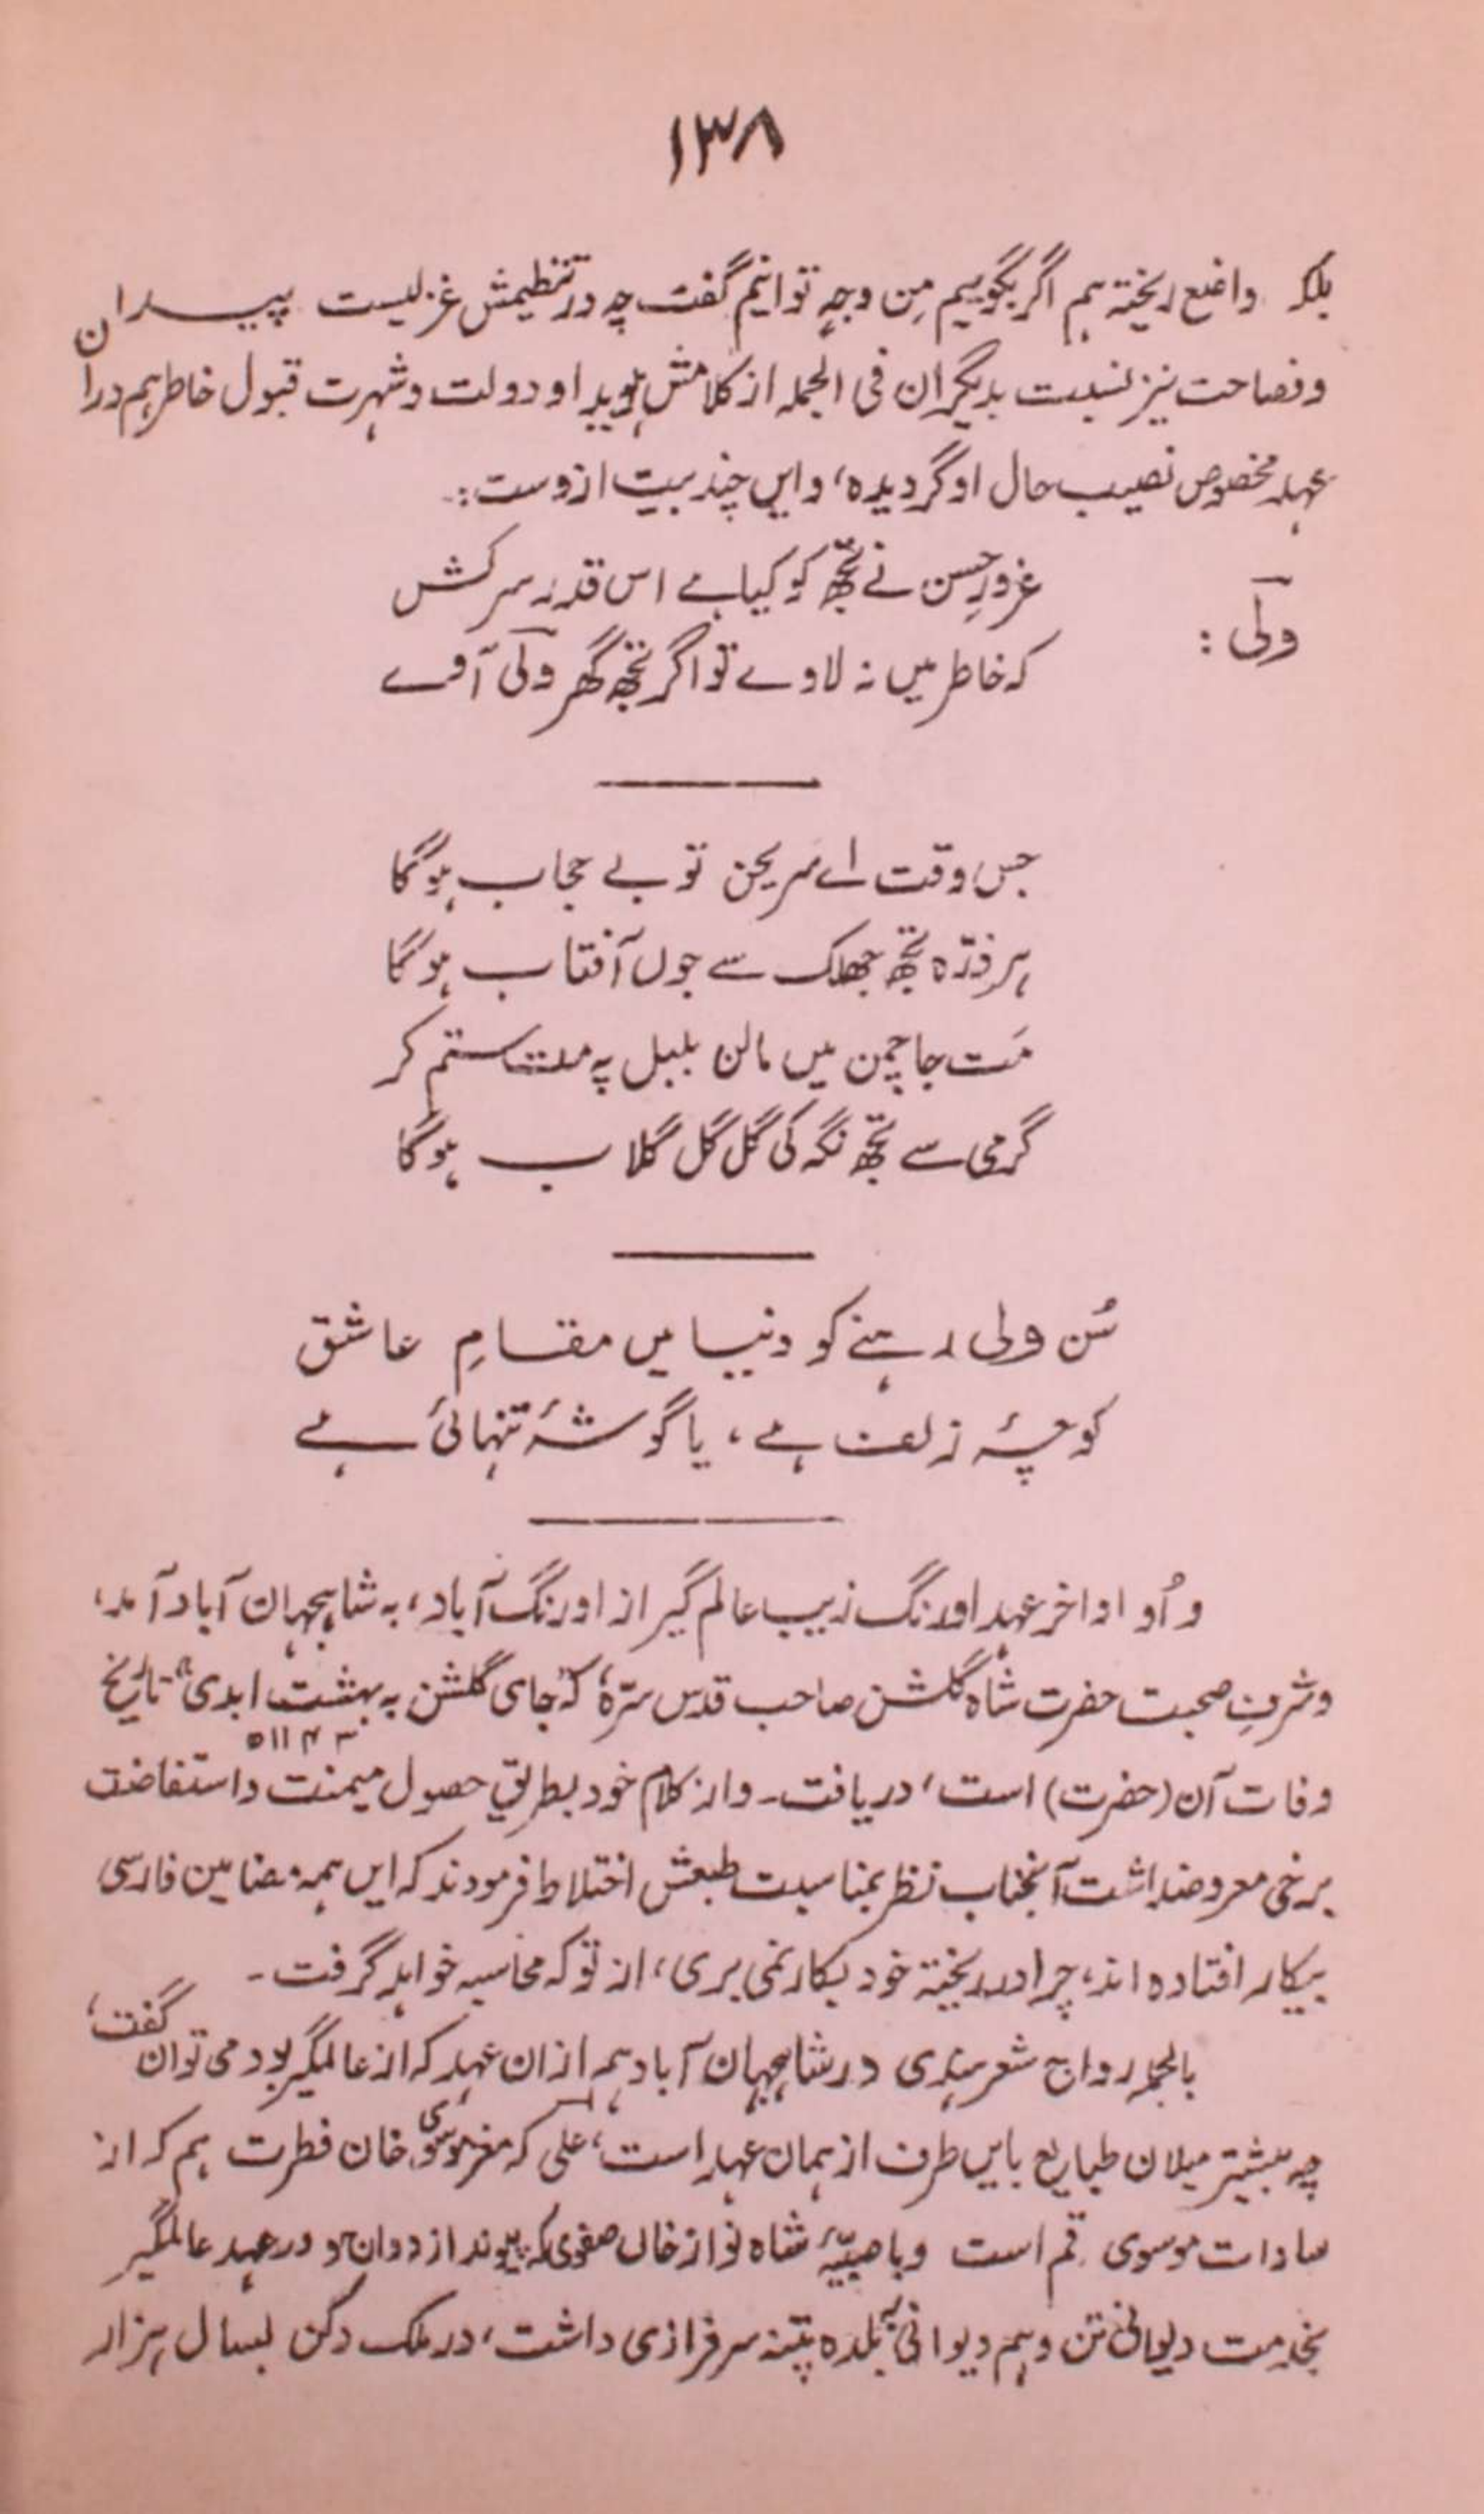 ۱۳۸
بلکہ واضع ریختہ ہم اگر بگوییم مِن وجہٍ توانیم گفت چہ در تنظیمش غزلیست پیـــران
وفصاحت نیز نسبت بدیگران فی الجملہ از کلامش ہویدا و دولت و شہرت قبول خاطر ہم درآن
عہد مخصوص نصیب حال او گردیدہ، و ایں چند بیت ازوست:۔
غرورِ حسن نے تجھ کو کیا ہے اس قدر سرکش
ولی :
کہ خاطر میں نہ لاوے تو اگر تجھ گھر ولی آوے
جس وقت اے سریجن تو بے حجاب ہوگا
ہر ذرّہ تجھ جھلک سے جوں آفتاب ہوگا
مَت جا چمن میں لالن بلبل پہ مت ستم کر
گرمی سے تجھ نگہ کی گل گل گلاب ہوگا
سُن ولی رہنے کو دنیا میں مقامِ عاشق
کوچۂ زلف ہے، یا گوشۂ تنہائی ہے
و اُو اواخر عہد اورنگ زیب عالم گیر از اورنگ آباد، بہ شاہجہان آباد آمد،
وشرفِ صحبت حضرت شاہ گلشن صاحب قدس سرّہٗ کہ "جای گلشن بہ بہشت ابدی" تاریخ
۱۱۴۳ھ
وفات آن (حضرت) است، دریافت۔ و از کلام خود بطریقِ حصول میمنت و استفاضت
برخی معروضداشت آنجناب نظر بمناسبت طبعش اختلاط فرمودند کہ ایں ہمہ مضامین فارسی
بیکار افتادہ اند، چرا در ریختۂ خود بکار نمی بری، از تو کہ محاسبہ خواہد گرفت۔
بالجملہ رواج شعر ہندی در شاہجہان آباد ہم ازان عہد کہ از عالمگیر بود می توان گفت،
چہ بیشتر میلان طبایع بایں طرف از ہمان عہد است، علی کہ معز موسوی خان فطرت ہم کہ از
سادات موسوی قم است و با صبیّۂ شاہ نواز خاں صفوی کہ پیوند ازدواج و در عہد عالمگیر
بخدمت دیوانی تن و ہم دیوانی بلدہ پتنہ سرفرازی داشت، در ملک دکن بسال ہزار